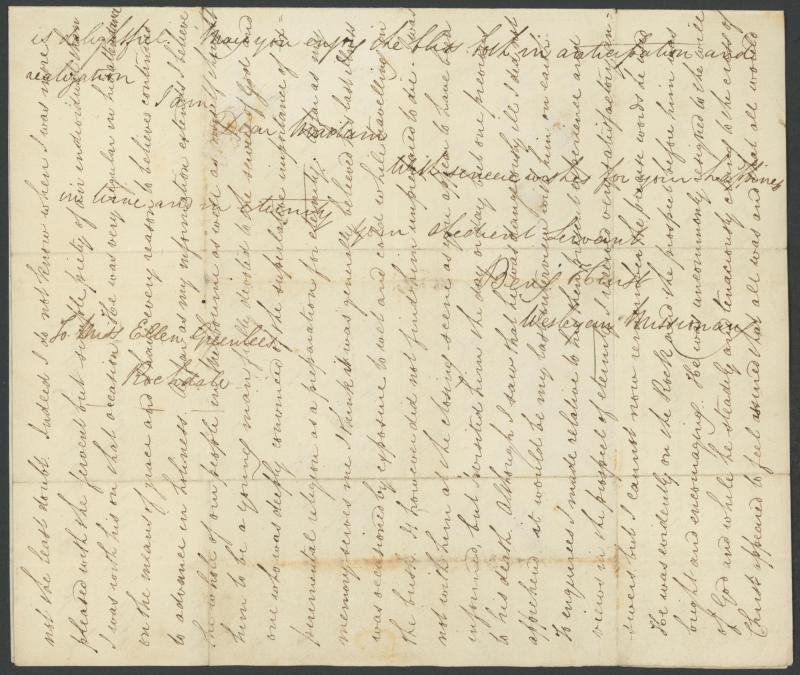 is delightful. May you enjoy the bliss both in anticipation and
realization
I am
Dear Madam
With sincere wishes for your happiness
in time and in eternity
Your obedient Servant
Benj. Hurst
Wesleyan Missionary
To Miss Ellen Greenlees
Rochdale
not the least doubt. Indeed I do not know when I was more
pleased with the fervent but simple piety of an individual than
I was with his on that occasion. He was very regular in his attendance
on the means of grace and I have every reason to believe continued
to advance in holiness. As far as my information extends I believe
the whole of our people in Melbourne as well as myself
him to be a young man fully devoted to the service of God and
one who was deeply convinced of the superlative importance of ex-
perimental religion as a preparation for eternity. As far as my
memory serves me I think it was generally believed his last illness
was occasioned by exposure to wet and cold while travelling in
the bush. It however did not find him unprepared to die. I was
not with him at the closing scene as you appear to have been
informed, but visited him the day or day but one previous
to his death. Although I saw that he was dangerously ill I did not
apprehend it would be my last interview with him on earth.
To enquiries I made relative to his then present experience and
views in the prospect of eternity, I received very satisfactory an-
swers but I cannot now remember the precise words he used
He was evidently on the Rock and the prospect before him was
bright and encouraging. He was uncommonly resigned to the will
of God and while he steadily and tenaciously clung to the cross of
Christ appeared to feel assured that all was and that all would